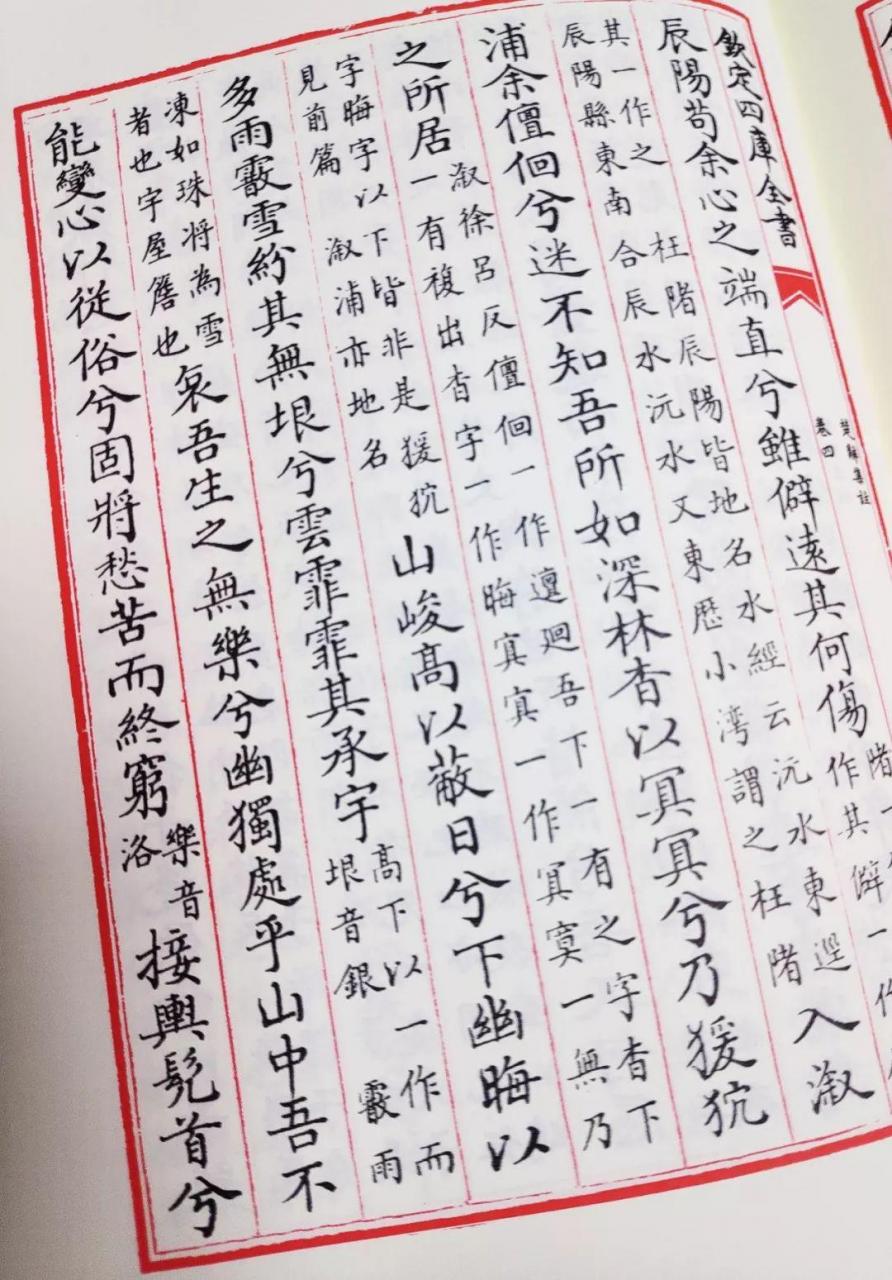 欽定四庫全書
楚辭集註
卷四
辰陽苟余心之端直兮雖僻遠其何傷
陼一
作其僻一作
其一作之 枉陼辰陽皆地名水經云沅水東逕
辰陽縣東南合辰水沅水又東歷小湾謂之枉陼
入溆
浦余儃佪兮迷不知吾所如深林杳以冥冥兮乃猨狖
之所居
溆徐呂反儃佪一作邅廻吾下一有之字杳下
一有複出杳字一作晦冥冥一作冥寞一無乃
字晦字以下皆非是猨狖
見前篇 溆浦亦地名
山峻髙以蔽日兮下幽晦以
多雨霰雪紛其無垠兮雲霏霏其承宇
高下以一作而
垠音銀 霰雨
凍如珠將為雪
者也宇屋簷也
哀吾生之無樂兮幽獨處乎山中吾不
能變心以從俗兮固將愁苦而終窮
樂音
洛
接輿髡首兮